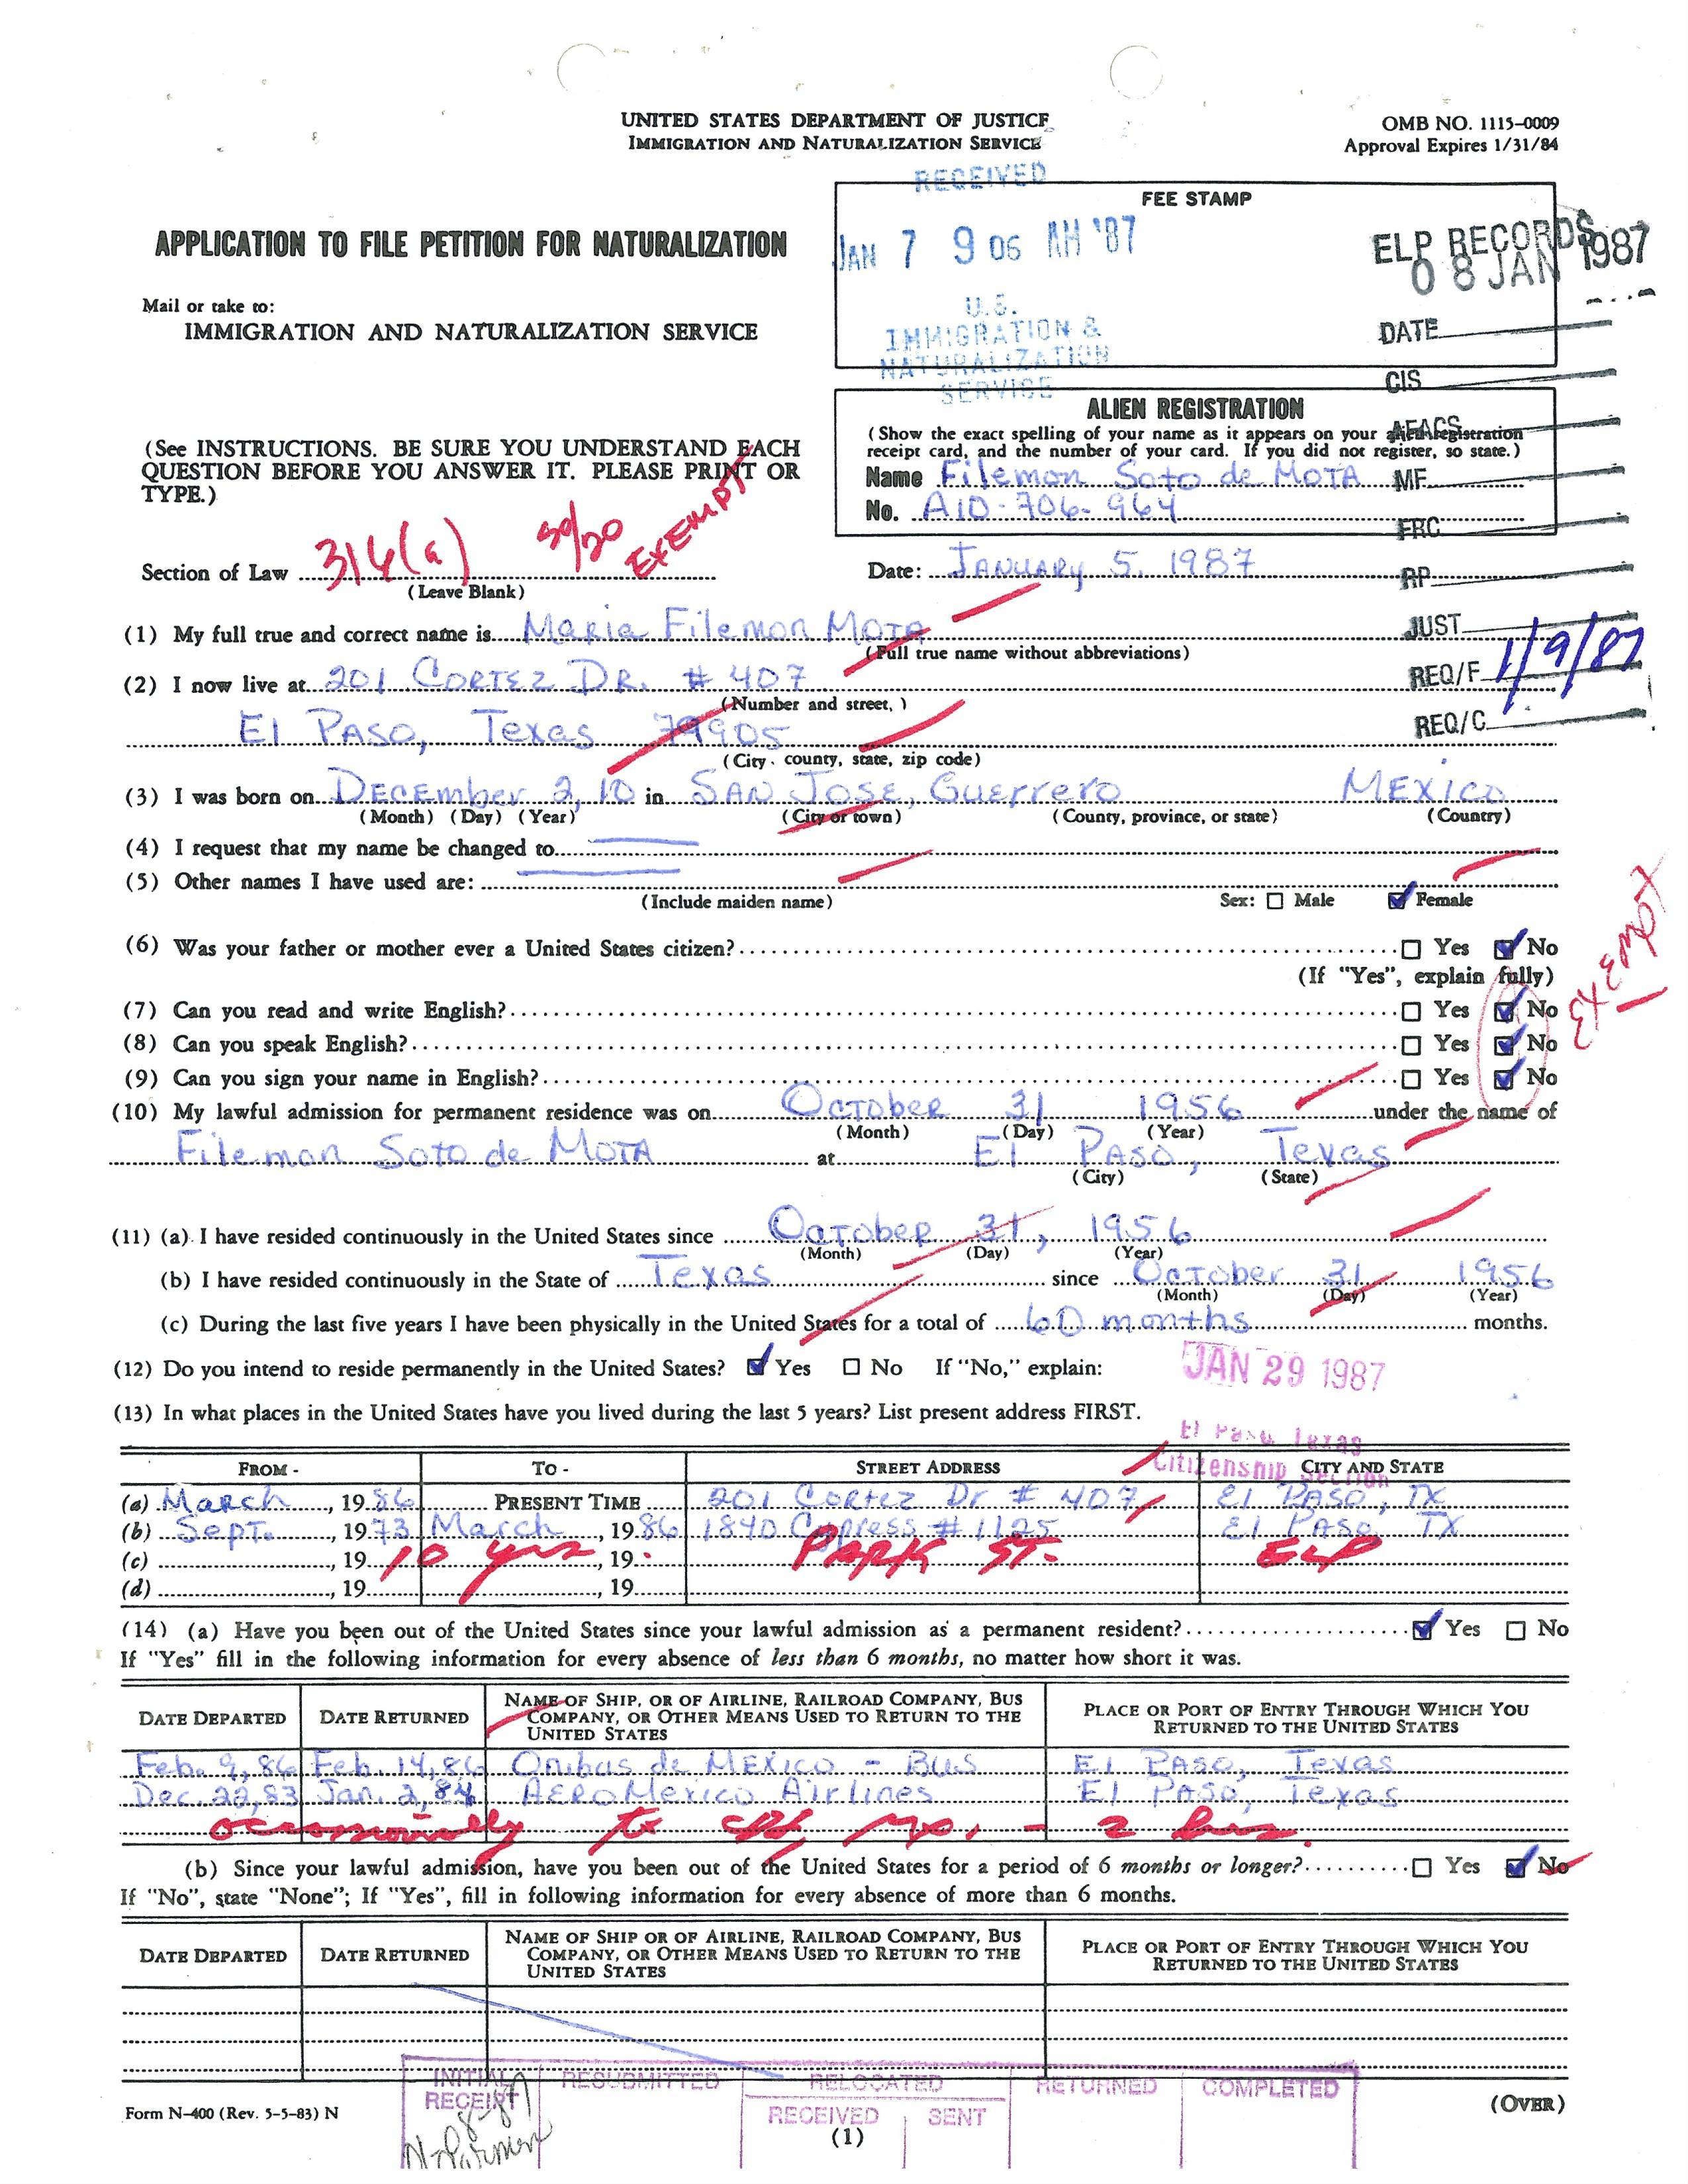 UNITED STATES DEPARTMENT OF JUSTICE
IMMIGRATION AND NATURALIZATION SERVICE
OMB NO. 1115-0009
Approval Expires 1/31/84
RECEIVED
FEE STAMP
JAN 7 9 06 AM '87
U.S.
IMMIGRATION &
NATURALIZATION
SERVICE
ELP RECORDS
08 JAN 1987
APPLICATION TO FILE PETITION FOR NATURALIZATION
Mail or take to:
IMMIGRATION AND NATURALIZATION SERVICE
DATE
CIS
AEACS
MF
FRC
RP
JUST
REQ/F 1/9/87
REQ/C
(See INSTRUCTIONS. BE SURE YOU UNDERSTAND EACH
QUESTION BEFORE YOU ANSWER IT. PLEASE PRINT OR
TYPE.)
ALIEN REGISTRATION
(Show the exact spelling of your name as it appears on your alien registration
receipt card, and the number of your card. If you did not register, so state.)
Name Filemon Soto de MOTA
No. A10-706-964
Section of Law 316(a) 50/20 EXEMPT
(Leave Blank)
Date: JANUARY 5, 1987
(1) My full true and correct name is Maria Filemon MOTA
(Full true name without abbreviations)
(2) I now live at 201 CORTEZ DR. # 407
(Number and street, )
El PASO, Texas 79905
(City, county, state, zip code)
(3) I was born on DECEmber 2, 10 in SAN JOSE, Guerrero MEXICO
(Month) (Day) (Year) (City or town) (County, province, or state) (Country)
(4) I request that my name be changed to
(5) Other names I have used are:
(Include maiden name) Sex: Male Female
(6) Was your father or mother ever a United States citizen? Yes No
(If "Yes", explain fully)
(7) Can you read and write English? Yes No
(8) Can you speak English? Yes No
(9) Can you sign your name in English? Yes No
EXEMPT
(10) My lawful admission for permanent residence was on OCTOBER 31 1956 under the name of
(Month) (Day) (Year)
Filemon Soto de MOTA at El PASO, Texas
(City) (State)
(11) (a) I have resided continuously in the United States since OCTOBER 31, 1956
(Month) (Day) (Year)
(b) I have resided continuously in the State of Texas since October 31 1956
(Month) (Day) (Year)
(c) During the last five years I have been physically in the United States for a total of 60 months months.
(12) Do you intend to reside permanently in the United States? Yes No If "No," explain:
JAN 29 1987
(13) In what places in the United States have you lived during the last 5 years? List present address FIRST.
El Paso Texas
Citizenship Section
FROM - TO - STREET ADDRESS CITY AND STATE
(a) March, 1986 PRESENT TIME 201 Cortez Dr # 407 El PASO, TX
(b) Sept., 1973 March, 1986 1840 Cypress # 1125 El PASO, TX
(c) , 19 10 yrs , 19 PARK ST. ELP
(d) , 19 , 19
(14) (a) Have you been out of the United States since your lawful admission as a permanent resident? Yes No
If "Yes" fill in the following information for every absence of less than 6 months, no matter how short it was.
DATE DEPARTED DATE RETURNED NAME OF SHIP, OR OF AIRLINE, RAILROAD COMPANY, BUS COMPANY, OR OTHER MEANS USED TO RETURN TO THE UNITED STATES PLACE OR PORT OF ENTRY THROUGH WHICH YOU RETURNED TO THE UNITED STATES
Feb. 9, 86 Feb. 14, 86 Onibus de MEXICO - Bus El PASO, Texas
Dec. 22, 83 Jan. 2, 84 AEROMexico Airlines El PASO, Texas
occasionally to - 2 hrs.
(b) Since your lawful admission, have you been out of the United States for a period of 6 months or longer? Yes No
If "No", state "None"; If "Yes", fill in following information for every absence of more than 6 months.
DATE DEPARTED DATE RETURNED NAME OF SHIP OR OF AIRLINE, RAILROAD COMPANY, BUS COMPANY, OR OTHER MEANS USED TO RETURN TO THE UNITED STATES PLACE OR PORT OF ENTRY THROUGH WHICH YOU RETURNED TO THE UNITED STATES
INITIAL RECEIPT RESUBMITTED RELOCATED RETURNED COMPLETED
RECEIVED SENT
Form N-400 (Rev. 5-5-83) N
(1)
(OVER)